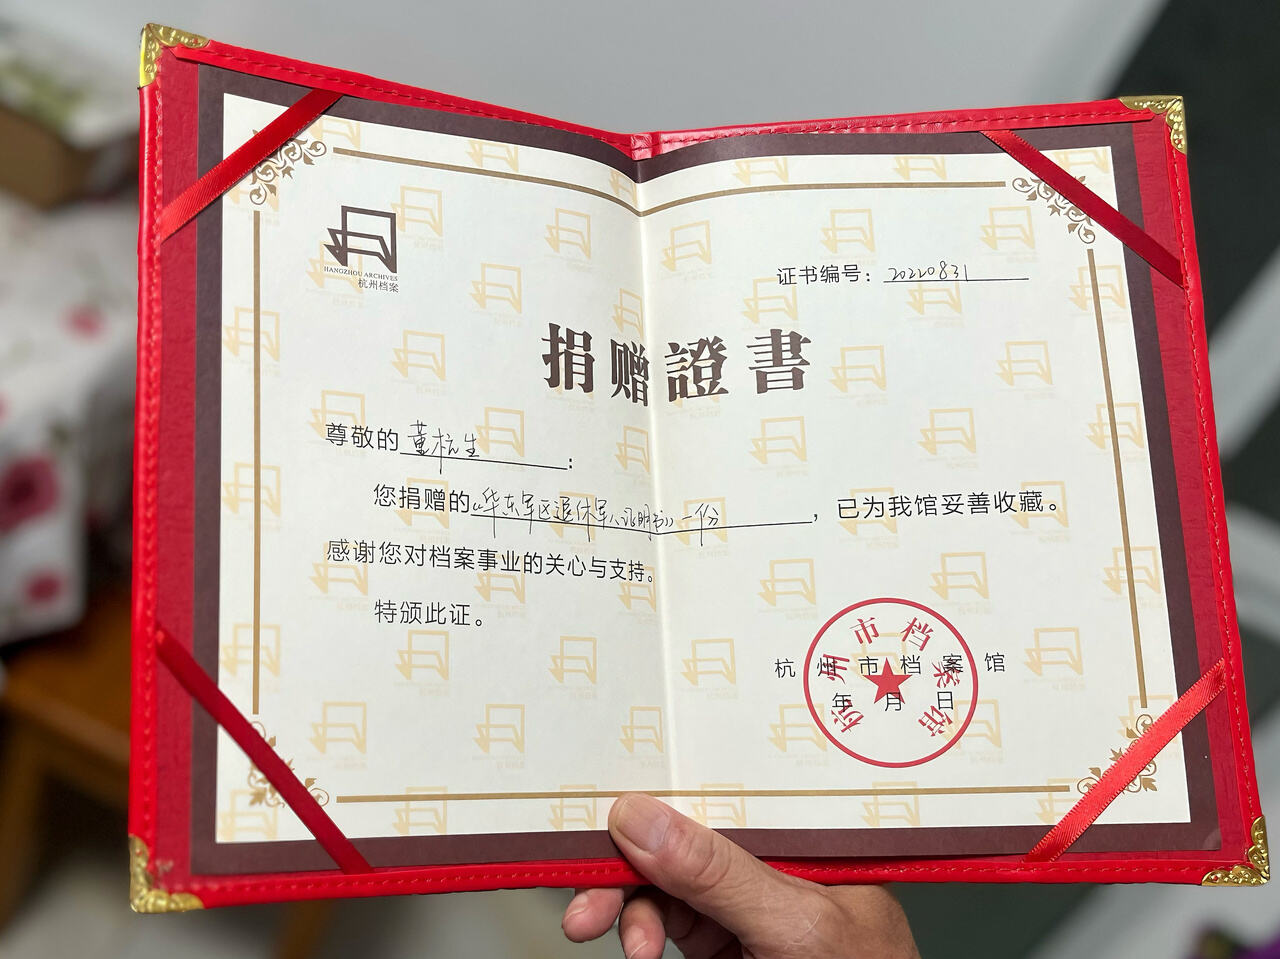 HANGZHOU ARCHIVES
杭州档案
证书编号：20220831
捐赠證書
尊敬的董杭生：
您捐赠的《华东军区退休军人证明书》一份，已为我馆妥善收藏。
感谢您对档案事业的关心与支持。
特颁此证。
杭州市档案馆
年 月 日
杭州市档案馆